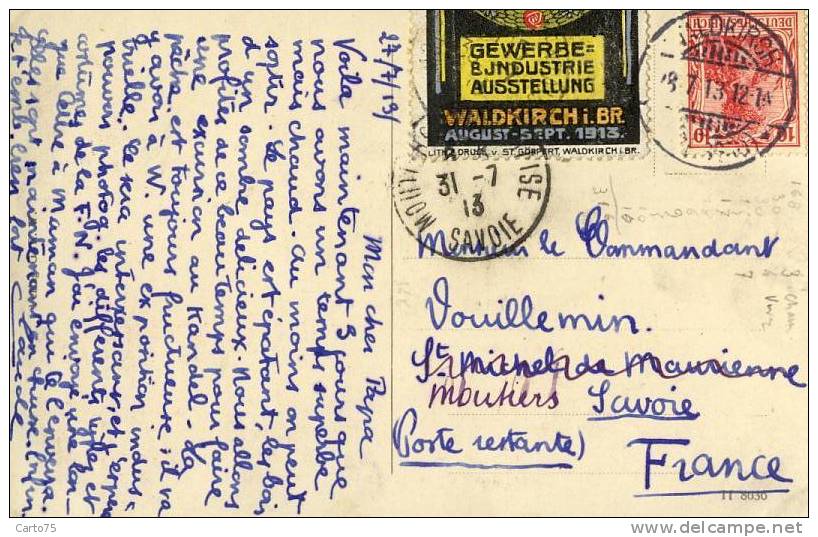 27/7/13
Mon cher Papa
Voila maintenant 3 jours que
nous avons un temps superbe
mais chaud. Au moins on peut
sortir. Le pays est épatant, les bois
d'un sombre délicieux. Nous allons
profiter de ce beau temps pour faire
une excursion au Kandel. La
pêche est toujours fructueuse. il va
y avoir à W. une exposition indus-
trielle. Ce sera intéressant, et j'espère
pouvoir photog. les différents types et
costumes de la F.N. j'ai envoyé une lon-
gue lettre à maman qui te l'enverra.
elles sont maintenant
GEWERBE=
& JNDUSTRIE
AUSSTELLUNG
WALDKIRCH i. BR.
AUGUST-SEPT. 1913.
LITH. & DRUCK V. ST. GÖPPERT, WALDKIRCH i. BR.
DEUTSCHES REICH
10 10
WALDKIRCH
28.7.13.12-1N
31 -7
13
SAVOIE
Monsieur le Commandant
Vouillemin.
St Michel de Maurienne
Moutiers Savoie
(Poste restante)
France
11 8030
Carto75
www.delcampe.net